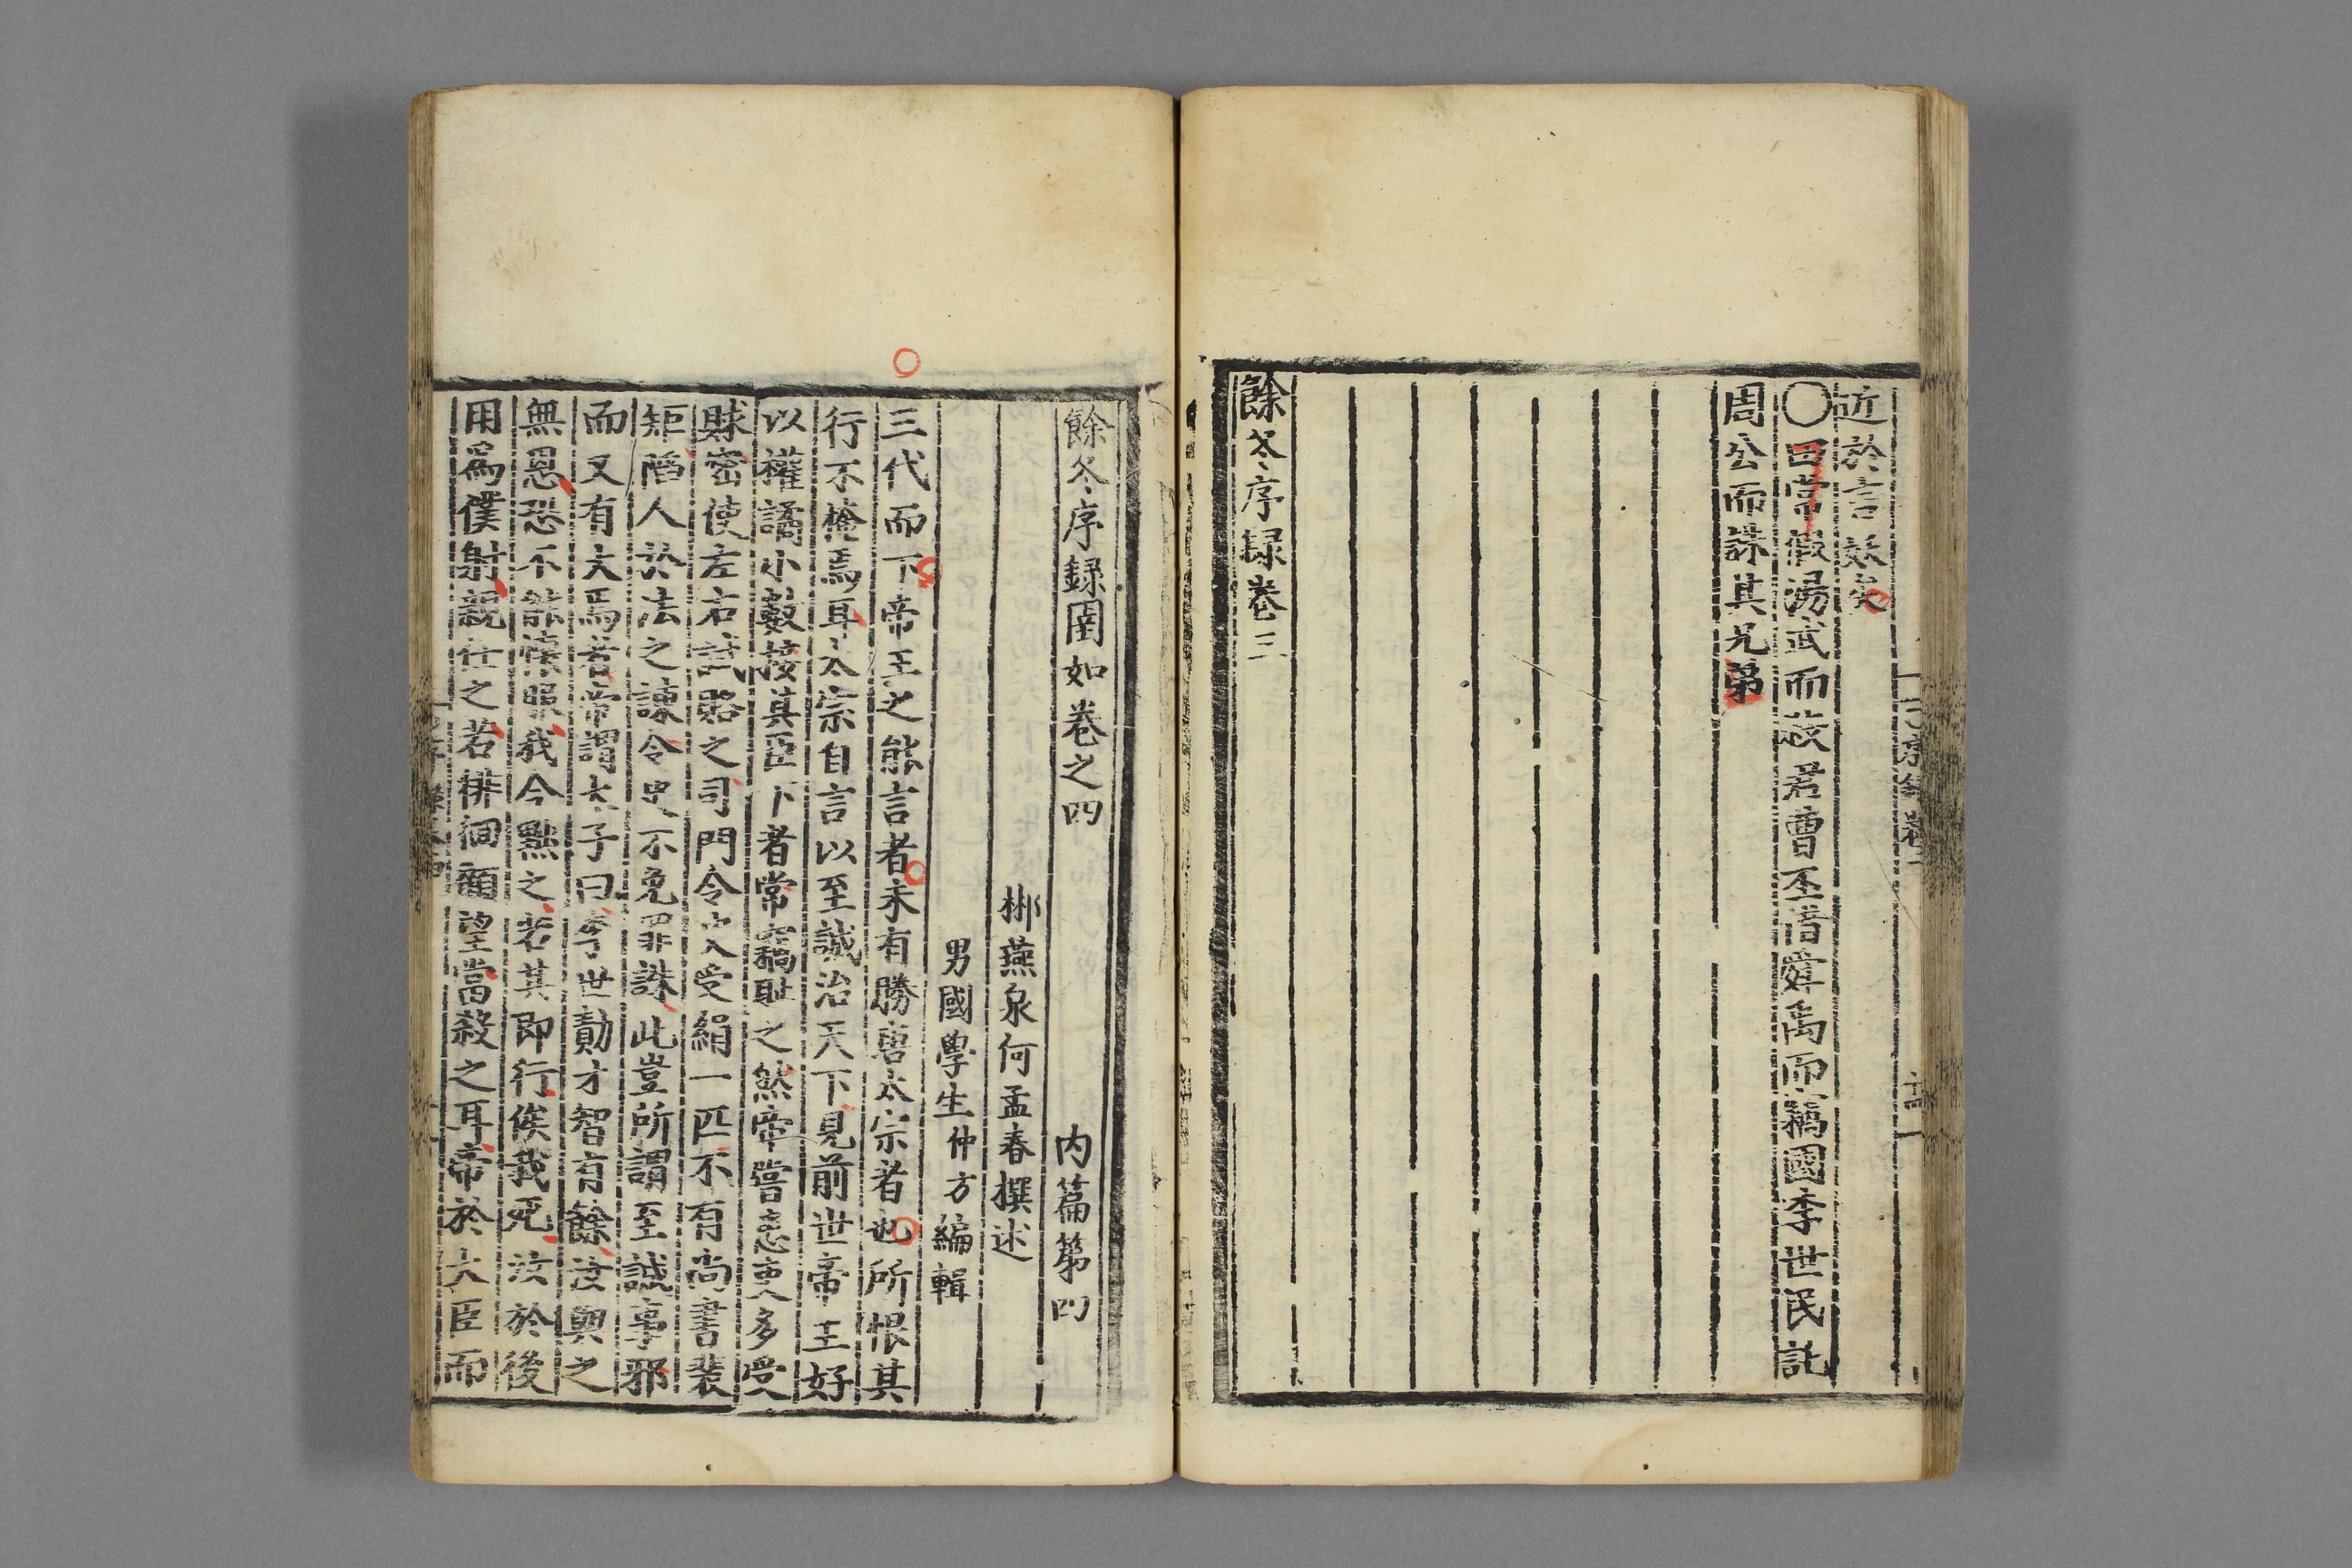 近於言妖矣
○田常假湯武而弑君曹丕借舜禹而竊國李世民託
周公而誅其兄弟
餘冬序録卷三
餘冬序録閏如卷之四 内篇第四
郴燕泉何孟春撰述
男國學生仲方編輯
三代而下帝王之能言者未有勝唐太宗者也所恨其
行不掩焉耳太宗自言以至誠治天下見前世帝王好
以權譎小數接其臣下者常竊耻之然帝嘗患吏多受
賕密使左右試賂之司門令史受絹一匹不有尚書裴
矩陷人於法之諫令史不免罪誅此豈所謂至誠事邪
而又有大焉者帝謂太子曰李世勣才智有餘汝與之
無恩恐不能懷服我今黜之若其即行俟我死汝於後
用爲僕射親任之若徘徊顧望當殺之耳帝於大臣而